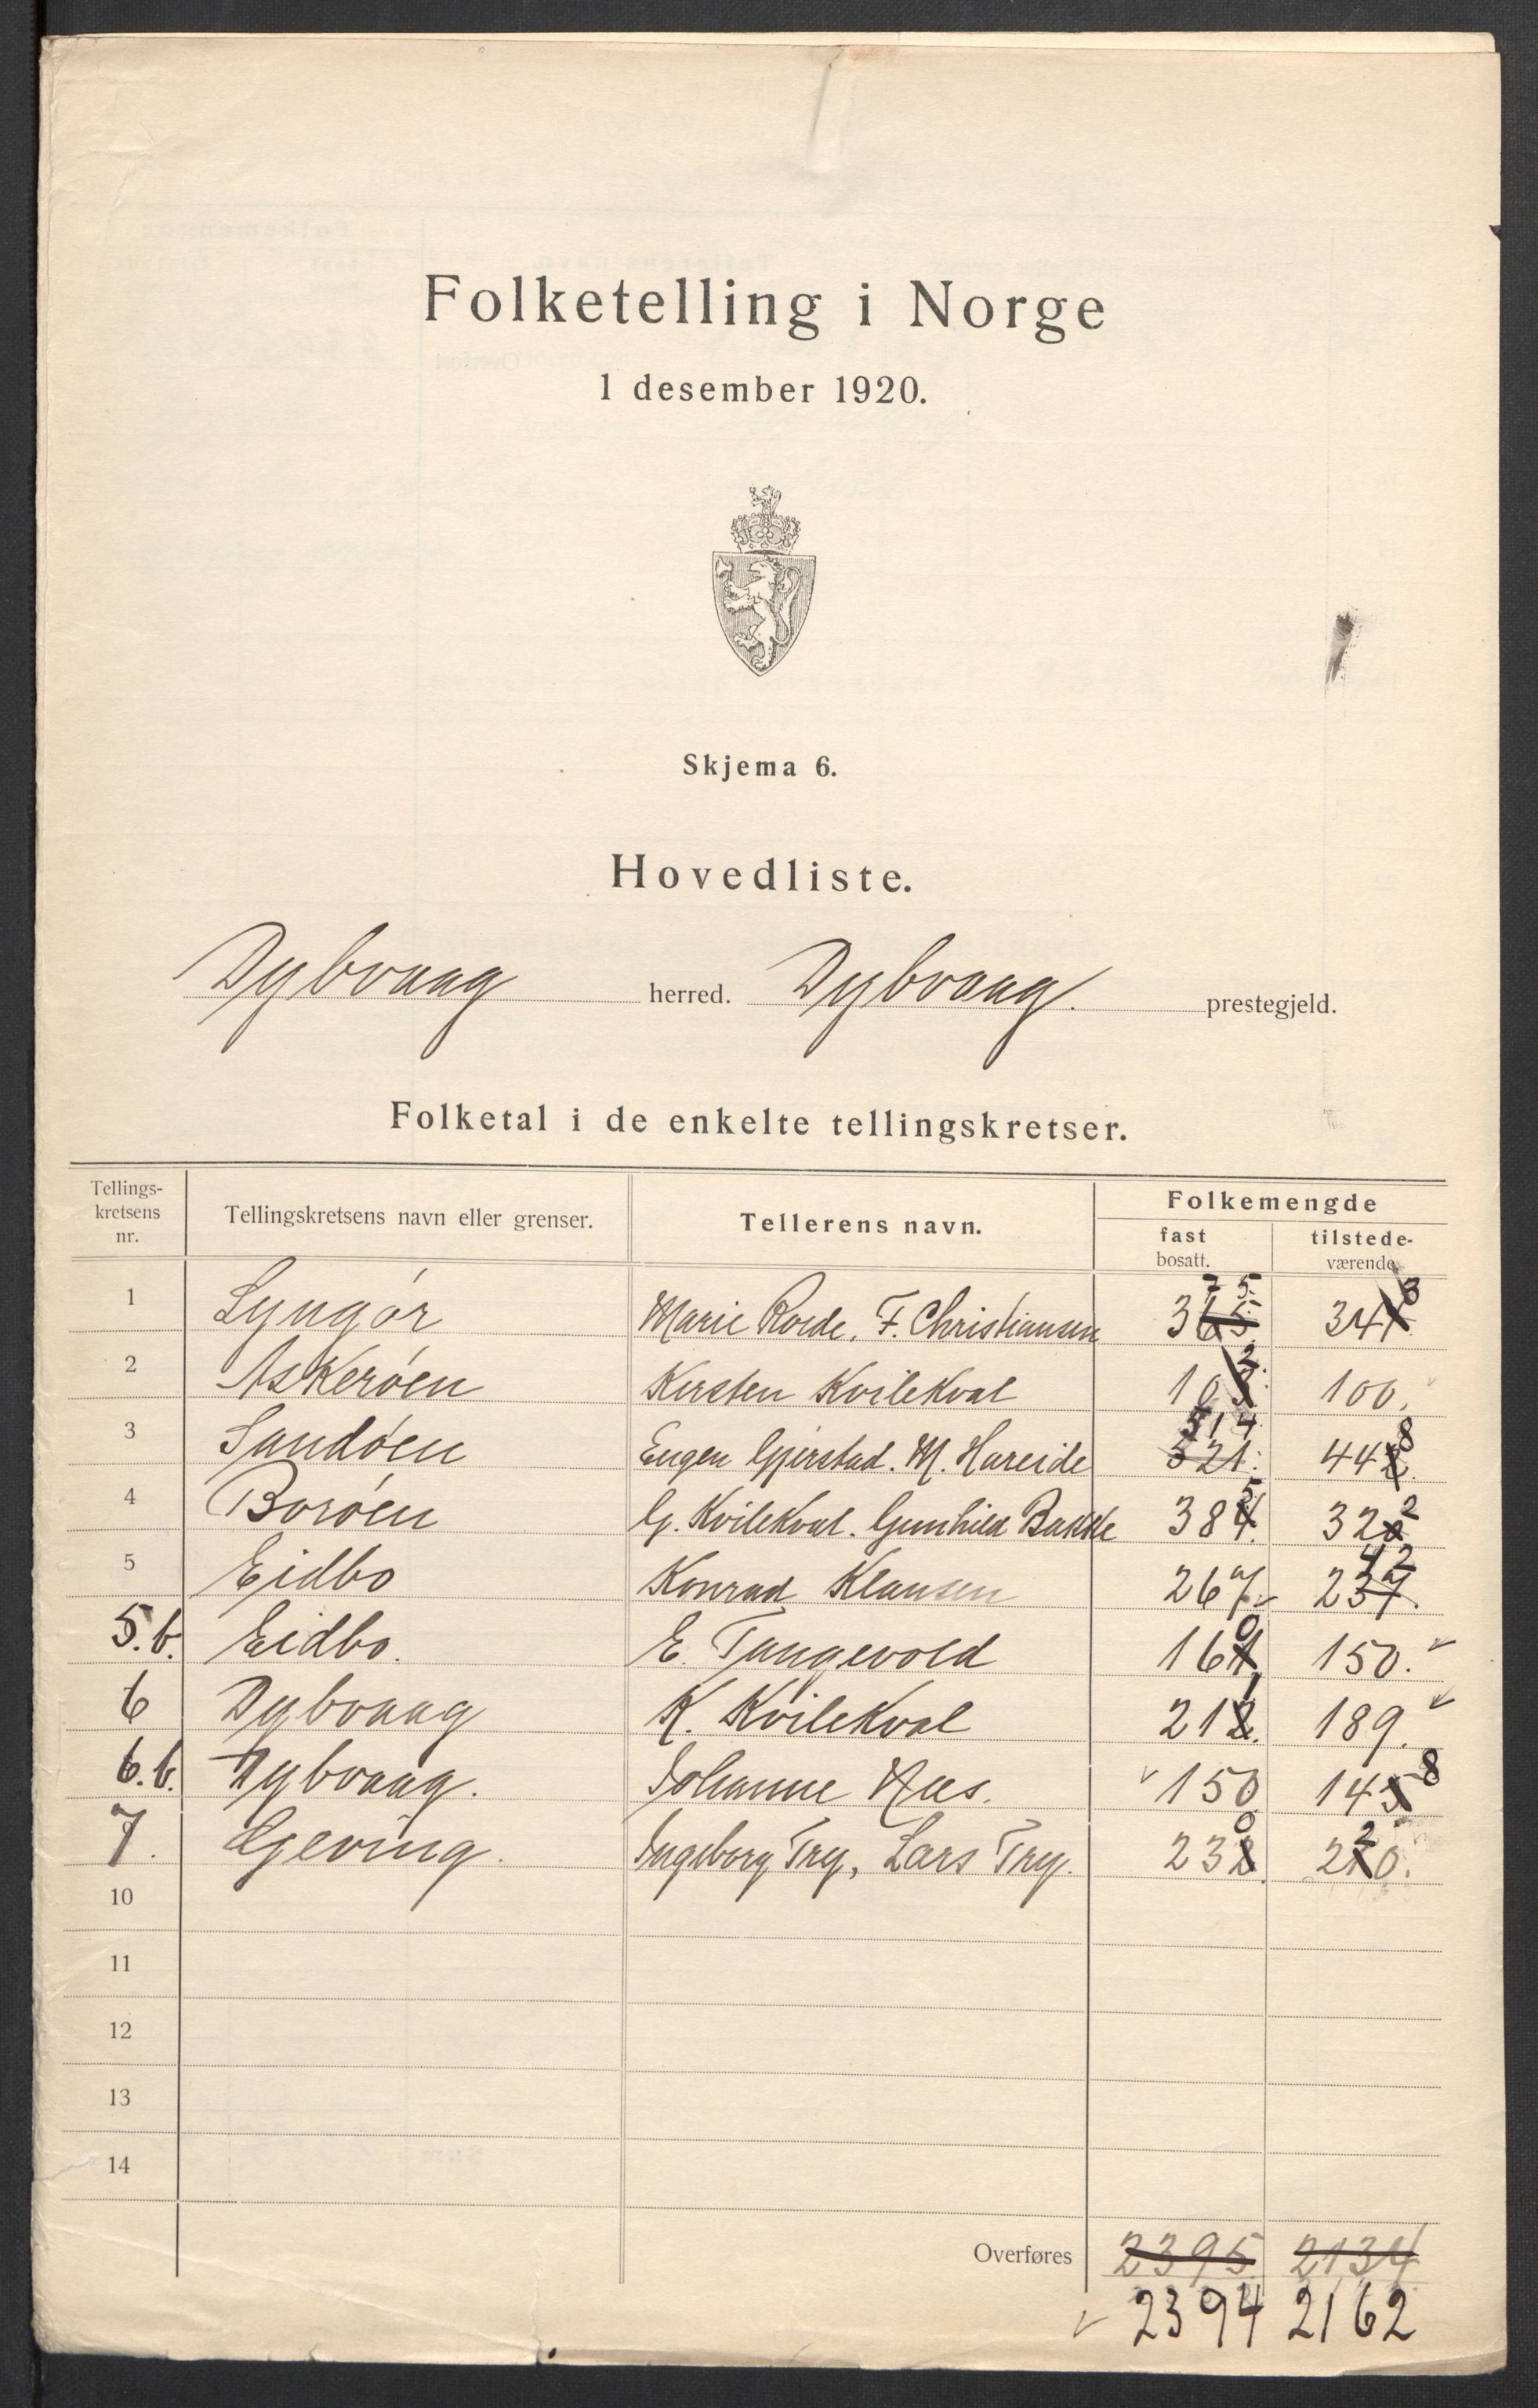 Folketelling i Norge
1 desember 1920.
Skjema 6.
Hovedliste.
Dybvaag herred. Dybvaag. prestegjeld.
Folketal i de enkelte tellingskretser.
Tellings-
kretsens
nr.
Tellingskretsens navn eller grenser.
Tellerens navn.
Folkemengde
fast
bosatt.
tilstede-
værende.
1 Lyngør Marie Roede. F. Christiansen 365 375 341 343
2 Askerøen Kirsten Kvilekval 103 102 100.
3 Sandøen Eugen Gjerstad. M. Hareide 521. 514 442 448
4 Borøen G. Kvilekval. Gunhild Bakke 384. 385 320 322
5 Eidbo Konrad Klausen 267. 237. 242
5.b. Eidbo. E. Tangevold 161 160 150.
6 Dybvaag K. Kvilekval 212. 211 189.
6.b. Dybvaag. Johanne Næs. 150 145 148
7. Gjeving. Ingeborg Try, Lars Try. 232 230 210. 220
10
11
12
13
14
Overføres 2395 2134
2394 2162